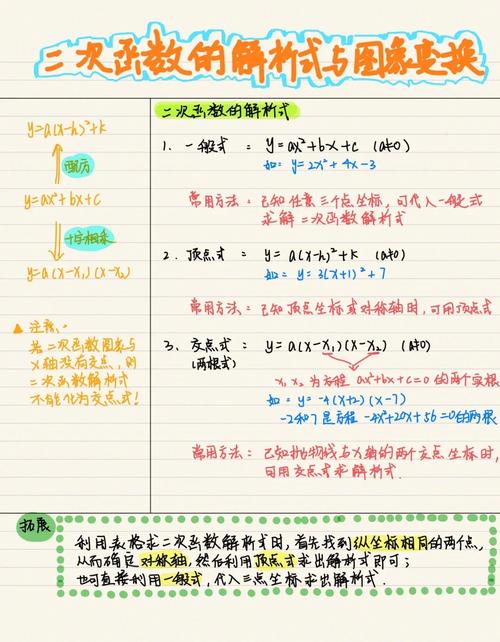 二次函数的解析式与图象变换
y=a(x-h)²+k
配方
y=ax²+bx+c
十字相乘
y=a(x-x₁)(x-x₂)
▲ 注意:
若二次函数图象与
x轴没有交点,则
二次函数解析式
不能化为交点式!
二次函数的解析式
1. 一般式 = y=ax²+bx+c (a≠0)
如: y=2x²+4x-3
常用方法: 已知任意三个点坐标,可代入一般式
求解二次函数解析式
2. 顶点式 = y=a(x-h)²+k (a≠0)
如= y=3(x+1)²+7
常用方法: 已知顶点坐标或对称轴时,可用顶点式
3. 交点式 = y=a(x-x₁)(x-x₂) (a≠0)
(两根式)
x₁ x₂ 为方程 ax²+bx+c=0 的两个实根
如= y=-4(x+2)(x-7)
-2和7是方程 -4x²+20x+56=0的两根
常用方法: 已知抛物线与x轴的两个交点坐标时,
可用交点式求解析式.
拓展
利用表格求二次函数解析式时,首先找到纵坐标相同的两个点,
从而确定对称轴,然后利用顶点式求出解析式即可;
也可直接利用一般式,代入三点坐标求出解析式.